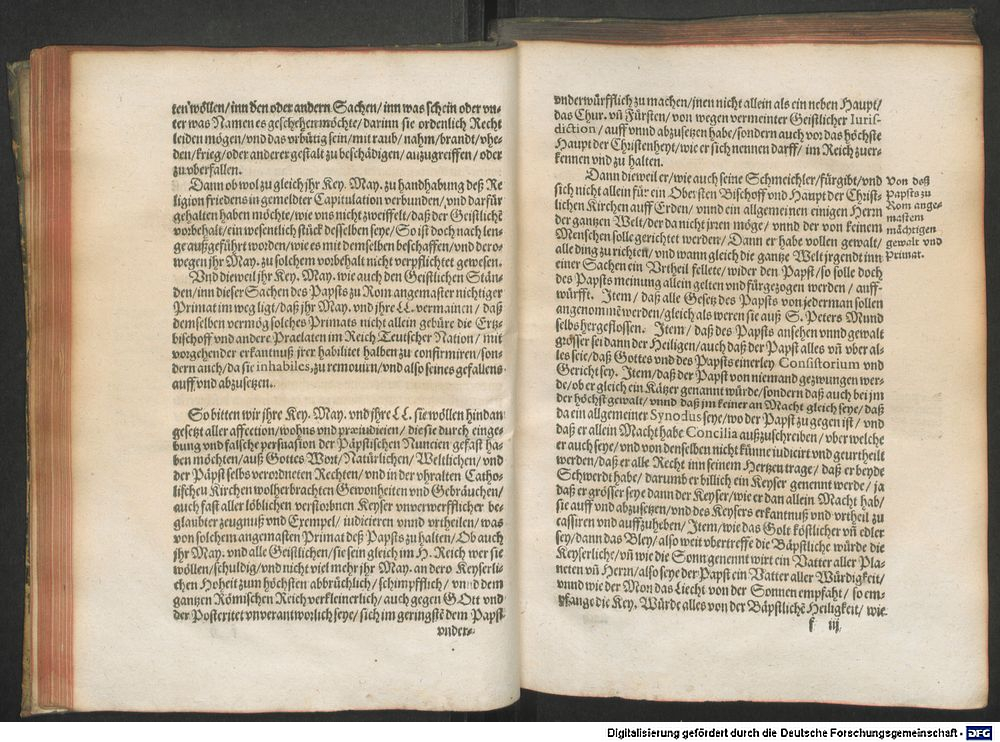 ten wöllen/inn den oder andern Sachen/inn was schein oder vn-
ter was Namen es geschehen möchte/darinn sie ordenlich Recht
leiden mögen/vnd das vrbütig sein/mit raub/nahm/brandt/vhe-
den/krieg/oder anderer gestalt zu beschädigen/anzugreiffen/oder
zu vberfallen.
Dann ob wol zu gleich jhr Key. May. zu handhabung deß Re
ligion friedens in gemeldter Capitulation verbunden/vnd darfür
gehalten haben möchte/wie vns nicht zweiffelt/daß der Geistlichẽ
vorbehalt/ein wesentlich stück desselben seye/So ist doch nach len-
ge außgeführt worden/wie es mit demselben beschaffen/vnd dero-
wegen jhr May. zu solchem vorbehalt nicht verpflichtet gewesen.
Vnd dieweil jhr Key. May. wie auch den Geistlichen Stän-
den/inn dieser Sachen des Papsts zu Rom angemaster nichtiger
Primat im weg ligt/daß jhr May. vnd jhre LL. vermainen/daß
demselben vermög solches Primats nicht allein gebüre die Ertz-
bischoff vnd andere Praelaten im Reich Teutscher Nation/mit
vorgehender erkantnuß jrer habilitet halben zu confirmiren/son-
dern auch/da sie inhabiles, zu remouirn/vnd also seines gefallens
auff vnd abzusetzen.
So bitten wir jhre Key. May. vnd jhre LL. sie wöllen hindan
gesetzt aller affection/wohns vnd præiudicien/die sie durch einge-
bung vnd falsche persuasion der Päpstischen Nuncien gefast ha-
ben möchten/auß Gottes Wort/Natürlichen/Weltlichen/vnd
der Päpst selbs verordneten Rechten/vnd in der vhralten Catho-
lischen Kirchen wolherbrachten Gewonheiten vnd Gebräuchen/
auch fast aller löblichen verstorbnen Keyser vnverwerfflicher be-
glaubter zeugnuß vnd Exempel/iudicieren vnnd vrtheilen/was
von solchem angemasten Primat deß Papsts zu halten/Ob auch
jhr May. vnd alle Geistlichen/sie sein gleich im H. Reich wer sie
wöllen/schuldig/vnd nicht viel mehr jhr May. an dero Keyserli-
chen Hoheit zum höchsten abbrüchlich/schimpfflich/vnnd dem
gantzen Römischen Reich verkleinerlich/auch gegen GOtt vnd
der Posteritet vnverantworlich seye/sich im geringstẽ dem Papst
vnder-
vnderwürfflich zu machen/jnen nicht allein als ein neben Haupt/
das Chur. vñ Fürsten/von wegen vermeinter Geistlicher Iuris-
diction/auff vnnd abzusetzen habe/sondern auch vor das höchste
Haupt der Christenheyt/wie er sich nennen darff/im Reich zuer-
kennen vnd zu halten.
Dann dieweil er/wie auch seine Schmeichler/fürgibt/vnd
sich nicht allein für ein Obersten Bischoff vnd Haupt der Christ-
lichen Kirchen auff Erden/vnnd ein allgemeinen einigen Herrn
der gantzen Welt/der da nicht jrren möge/vnnd der von keinem
Menschen solle gerichtet werden/Dann er habe vollen gewalt/
alle ding zu richten/vnd wann gleich die gantze Welt jrgendt inn
einer Sachen ein Vrtheil fellete/wider den Papst/so solle doch
des Papsts meinung allein gelten vnd fürgezogen werden/auff-
würfft. Item/daß alle Gesetz des Papsts von jederman sollen
angenommẽ werden/gleich als weren sie auß S. Peters Mund
selbs hergeflossen. Item/daß des Papsts ansehen vnnd gewalt
grösser sei dann der Heiligen/auch daß der Papst alles vñ vber al-
les seie/daß Gottes vnd des Papsts einerley Consistorium vnd
Gericht sey. Item/daß der Papst von niemand gezwungen wer-
de/ob er gleich ein Kätzer genannt würde/sondern daß auch bei jm
der höchst gewalt/vnnd daß jm keiner an Macht gleich seye/daß
da ein allgemeiner Synodus seye/wo der Papst zu gegen ist/vnd
daß er allein Macht habe Concilia außzuschreiben/vber welche
er auch seye/vnd von denselben nicht künne iudicirt vnd geurtheilt
werden/daß er alle Recht inn seinem Hertzen trage/daß er beyde
Schwerdt habe/darumb er billich ein Keyser genennt werde/ja
daß er grösser seye dann der Keyser/wie er dan allein Macht hab/
sie auff vnd abzusetzen/vnd des Keysers erkantnuß vnd vrtheil zu
cassiren vnd auffzuheben/Item/wie das Golt köstlicher vñ edler
sey/dann das Bley/also weit vbertreffe die Bäpstliche würde die
Keyserliche/vñ wie die Sonn genennt wirt ein Vatter aller Pla-
neten vñ Herrn/also seye der Papst ein Vatter aller Würdigkeit/
vnnd wie der Mon das Liecht von der Sonnen empfaht/so em-
pfange die Key. Würde alles von der Bäpstlichẽ Heiligkeit/wie
f iij
Von deß
Papsts zu
Rom ange-
mastem
mächtigen
gewalt vnd
Primat.
Digitalisierung gefördert durch die Deutsche Forschungsgemeinschaft - DFG